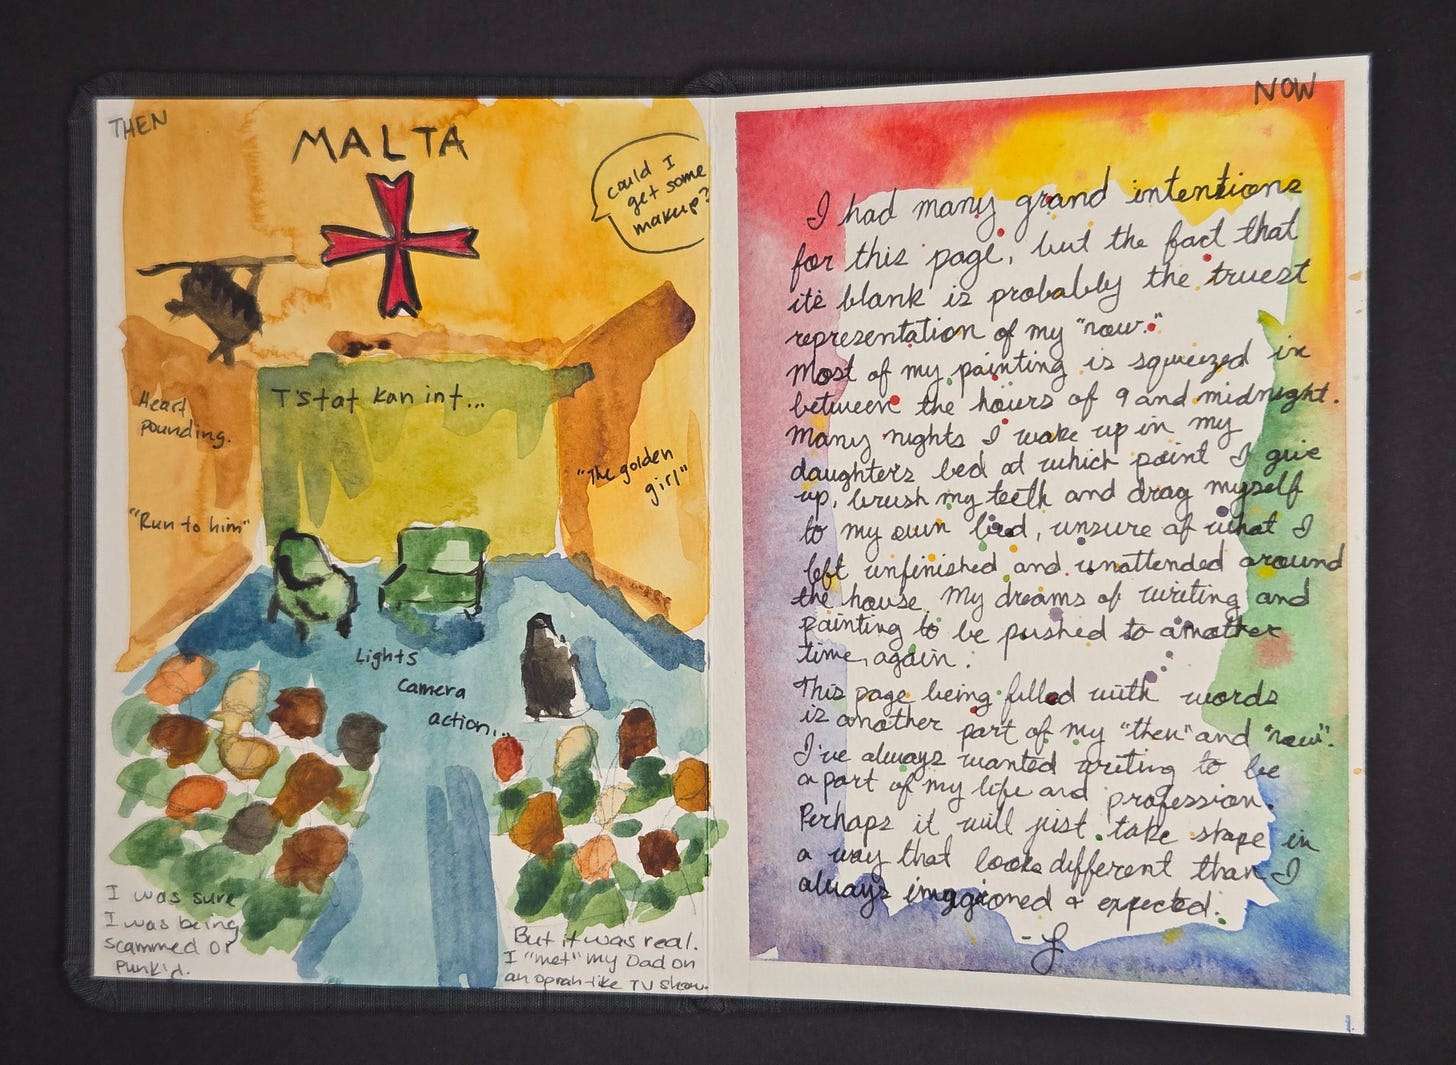 THEN
MALTA
could I
get some
makup?
T'stat kan int...
Heart
pounding.
"The golden
girl"
"Run to him"
Lights
camera
action...
I was sure
I was being
scammed or
Punk'd.
But it was real.
I "met" my Dad on
an oprah-like TV show.
NOW
I had many grand intentions
for this page, but the fact that
its blank is probably the truest
representation of my "now."
Most of my painting is squeezed in
between the hours of 9 and midnight.
Many nights I wake up in my
daughters bed at which point I give
up, brush my teeth and drag myself
to my own bed, unsure of what I
left unfinished and unattended around
the house. My dreams of writing and
painting to be pushed to another
time, again.
This page being filled with words
is another part of my "then" and "now".
I've always wanted writing to be
a part of my life and profession.
Perhaps it will just take shape in
a way that looks different than I
always imagined & expected.